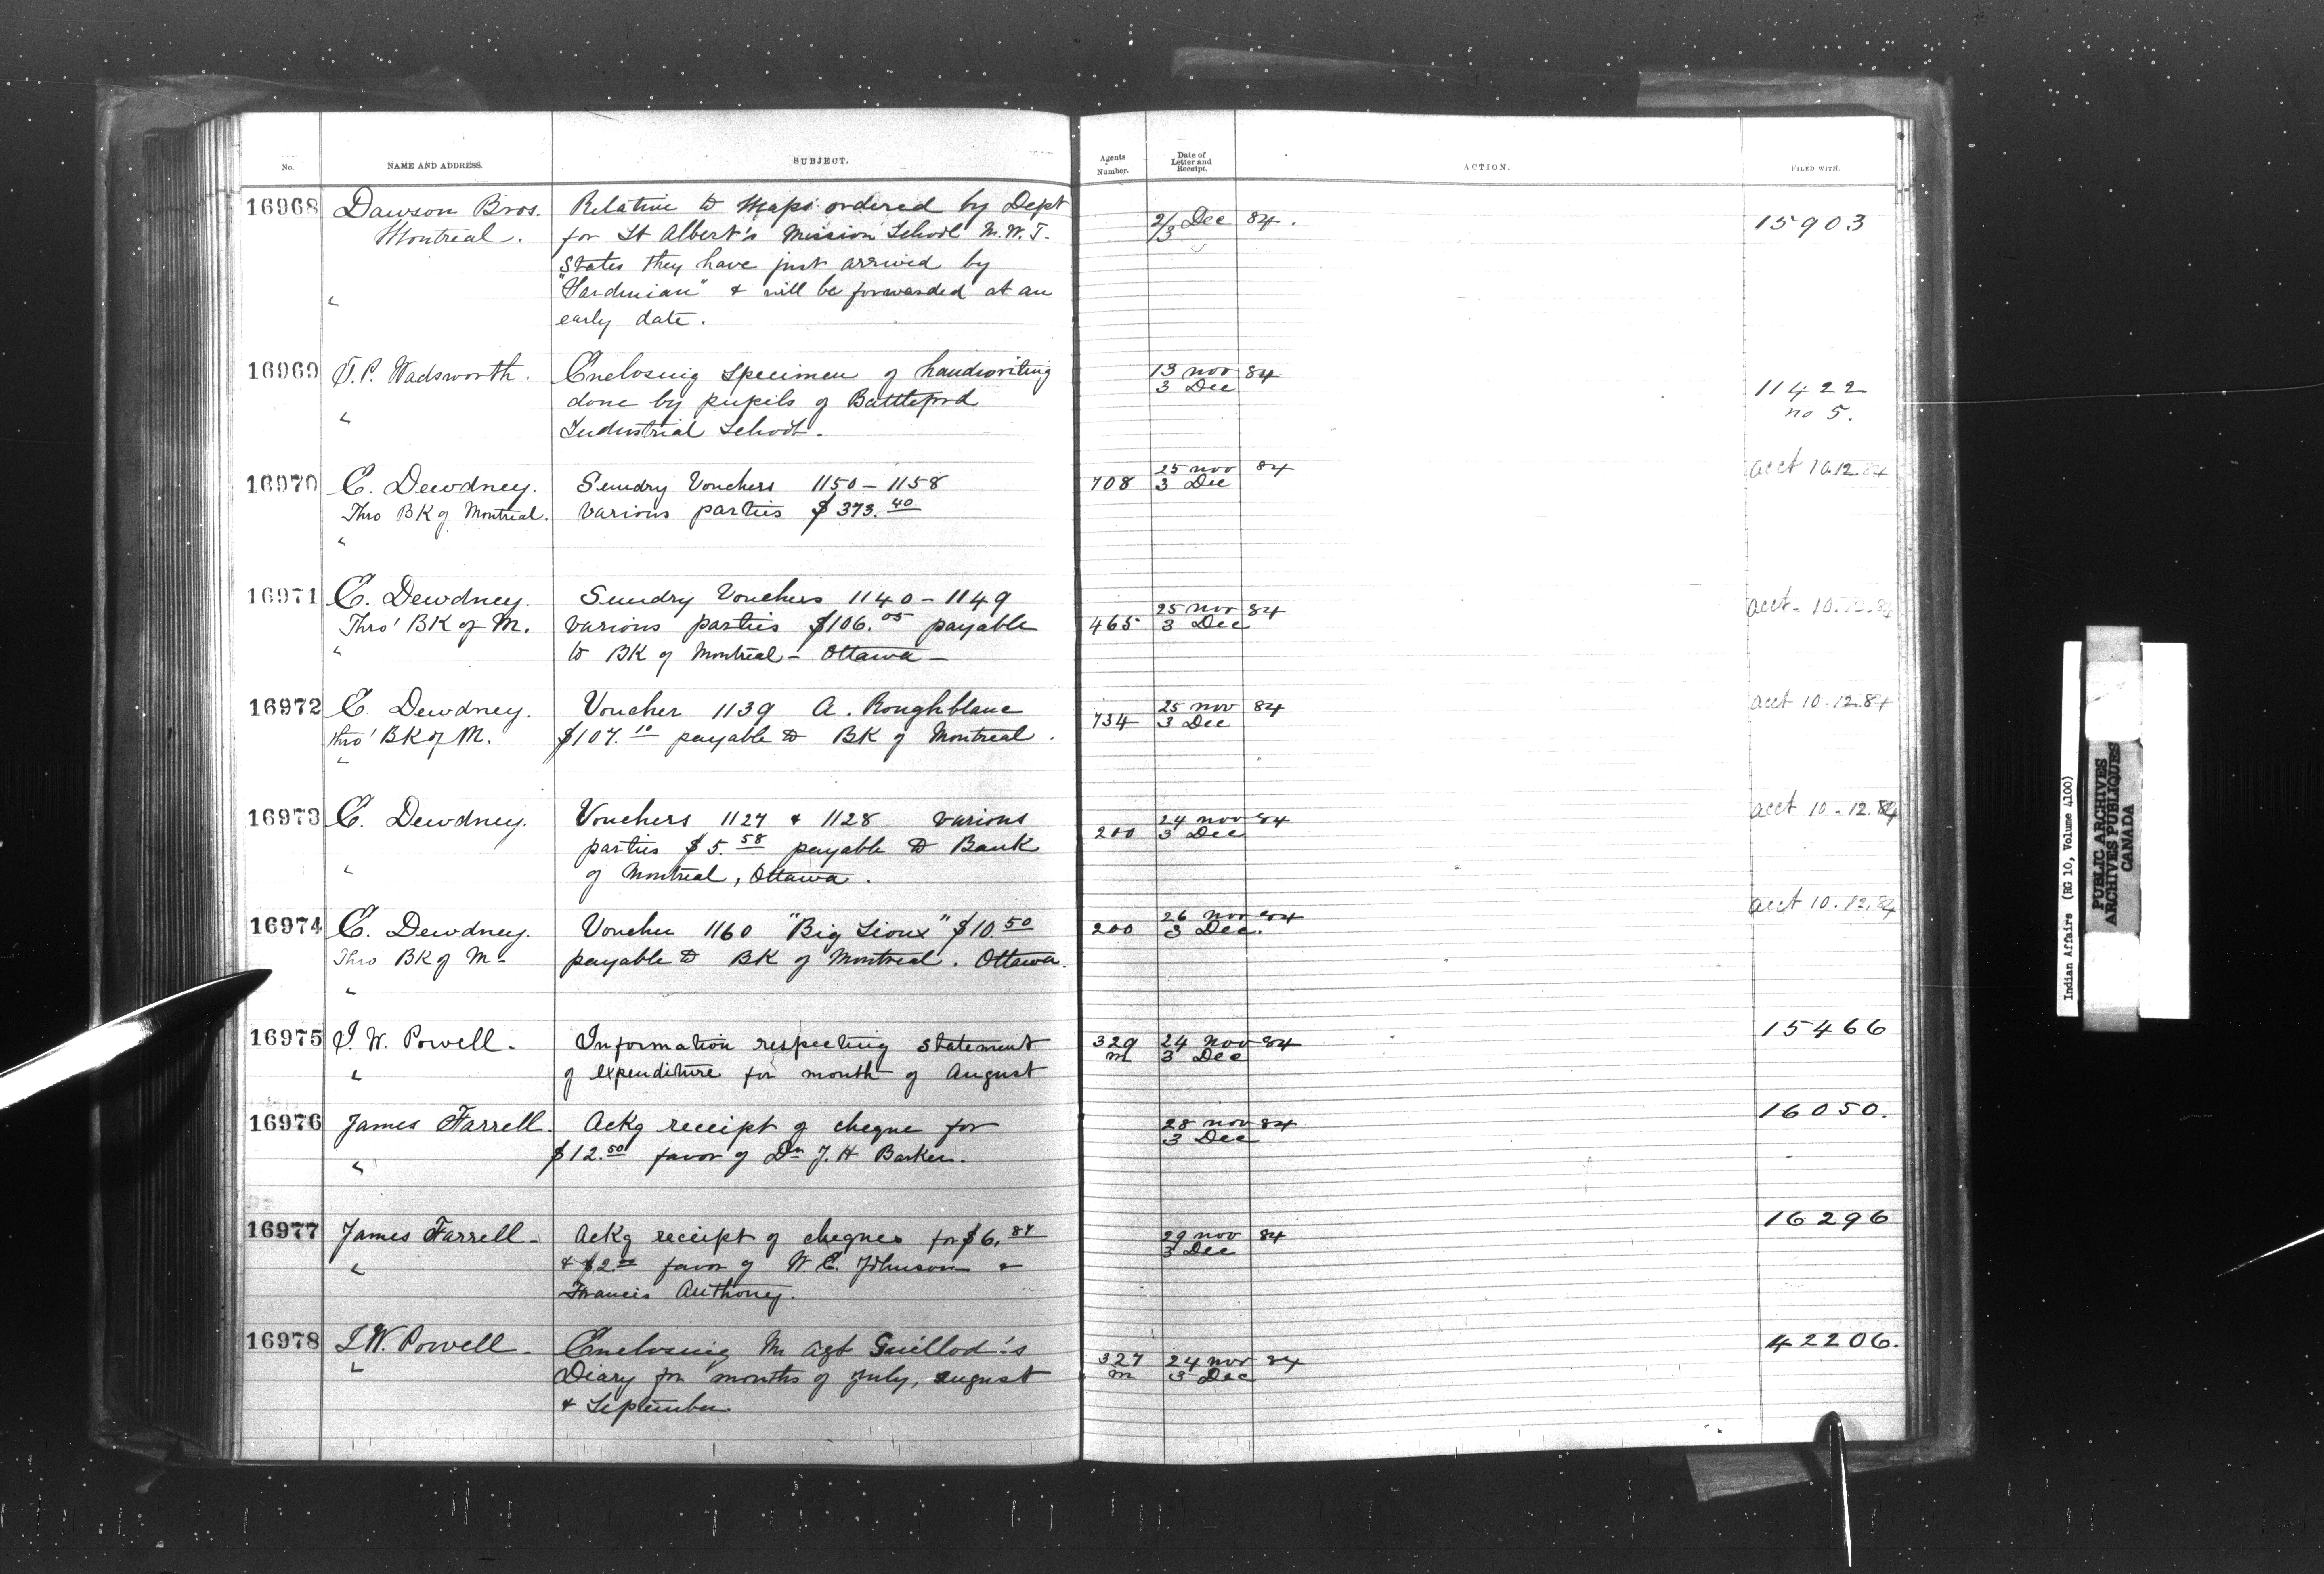 No. NAME AND ADDRESS. SUBJECT. Agents Number. Date of Letter and Receipt. ACTION. FILED WITH.
16968 Dawson Bros. Relative to Maps ordered by Dept 2/3 Dec 84. 15903
Montreal. for St Albert's Mission School N.W.T.
States they have just arrived by
" "Sardinian" & will be forwarded at an
early date.
16969 T.P. Wadsworth. Enclosing specimen of handwriting 13 Nov 84 11422
" done by pupils of Battleford 3 Dec no 5.
Industrial School.
16970 E. Dewdney. Sundry Vouchers 1150 - 1158 708 25 Nov 84 acct 10.12.84
Thro BK of Montreal. various parties $373.40 3 Dec
"
16971 E. Dewdney. Sundry Vouchers 1140 - 1149 25 Nov 84 acct. 10.12.84
Thro' BK of M. various parties $106.05 payable 465 3 Dec
" to BK of Montreal - Ottawa -
16972 E. Dewdney. Voucher 1139 A. Roughblanc 734 25 Nov 84 acct 10.12.84
thro' BK of M. $107.10 payable to BK of Montreal. 3 Dec
"
16973 E. Dewdney. Vouchers 1127 & 1128 various 200 24 Nov 84 acct 10.12.84
parties $5.58 payable to Bank 3 Dec
" of Montreal, Ottawa.
16974 E. Dewdney. Voucher 1160 "Big Sioux" $10.50 200 26 Nov 84 acct 10.12.84
Thro BK of M- payable to BK of Montreal. Ottawa. 3 Dec.
"
16975 I. W. Powell. Information respecting statement 329 24 Nov 84 15466
" of expenditure for month of August m 3 Dec
16976 James Farrell. Ackg receipt of cheque for 28 Nov 84 16050.
" $12.50 favor of Dr J. H Barker. 3 Dec
16977 James Farrell - Ackg receipt of cheques for $6.84 29 Nov 84 16296
" & $2.00 favor of W. E. Johnson & 3 Dec
Francis Anthony.
16978 I.W. Powell - Enclosing Mr Agt Guillod's 327 24 Nov 84 42206.
" Diary for months of July, August m 3 Dec
& September.
Indian Affairs (RG 10, Volume 4100)
PUBLIC ARCHIVES
ARCHIVES PUBLIQUES
CANADA